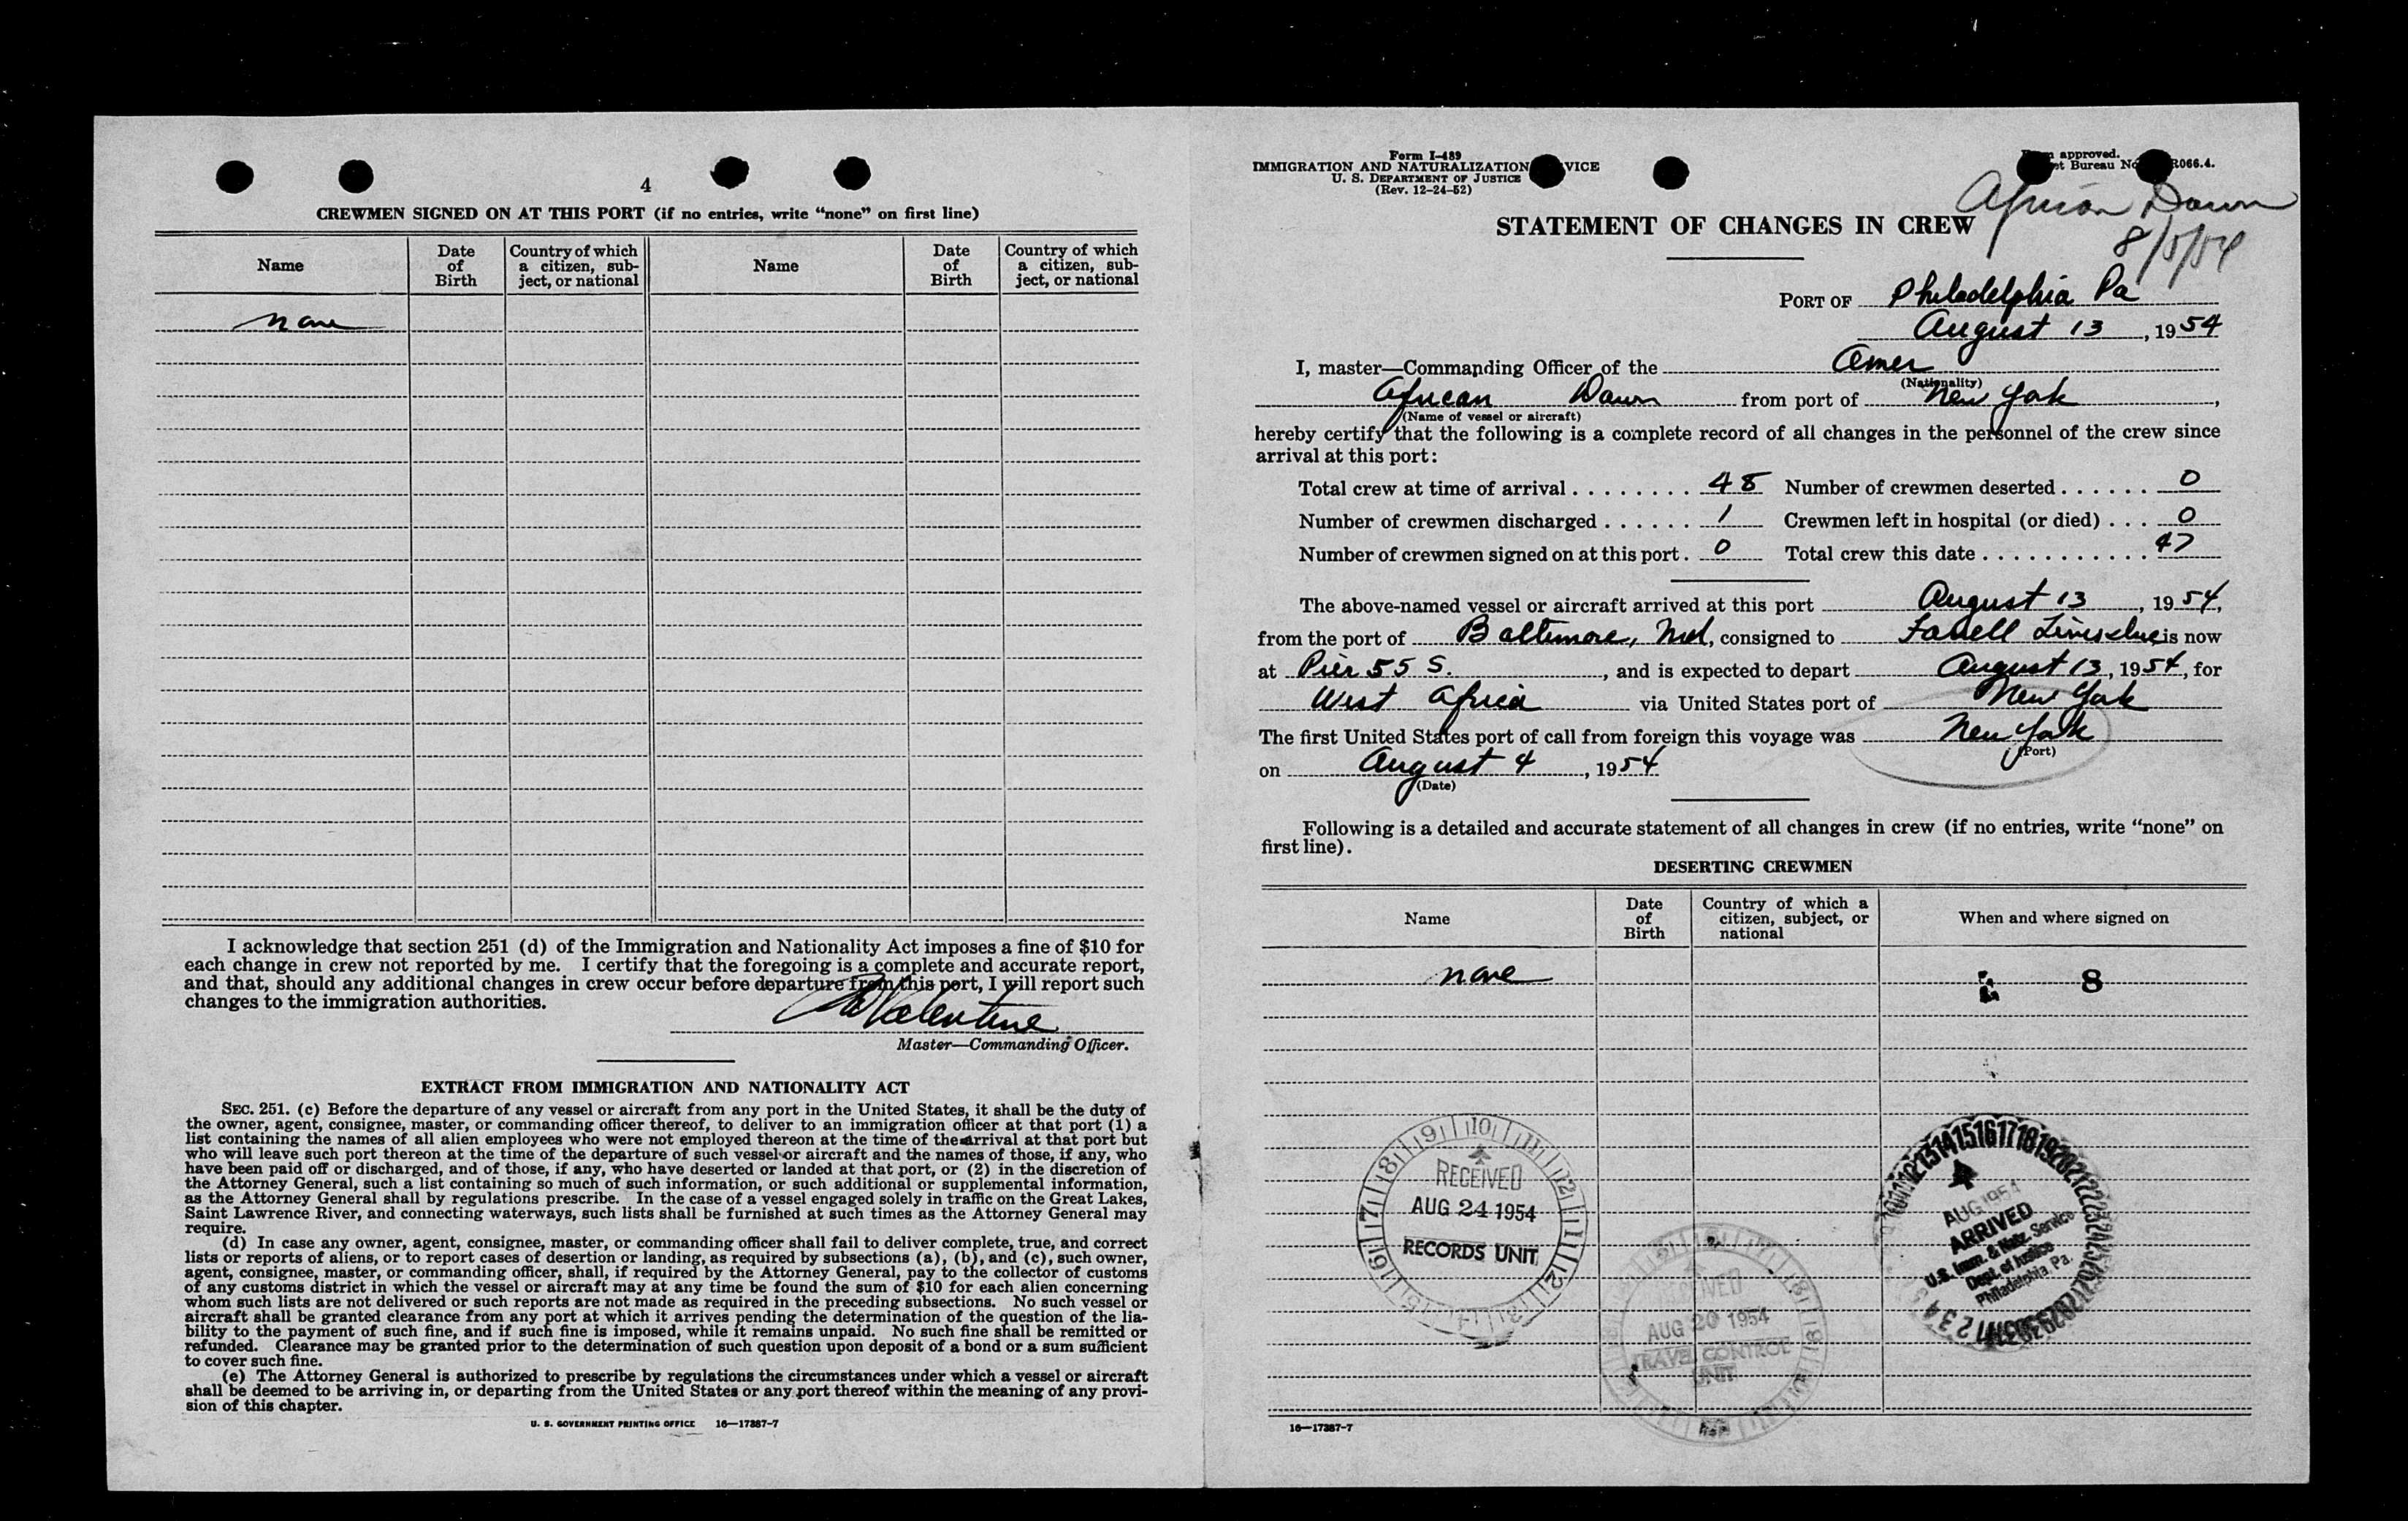 4
CREWMEN SIGNED ON AT THIS PORT (if no entries, write “none” on first line)
Name
Date of Birth
Country of which a citizen, subject, or national
Name
Date of Birth
Country of which a citizen, subject, or national
none
I acknowledge that section 251 (d) of the Immigration and Nationality Act imposes a fine of $10 for
each change in crew not reported by me. I certify that the foregoing is a complete and accurate report,
and that, should any additional changes in crew occur before departure from this port, I will report such
changes to the immigration authorities.
Valentine
Master—Commanding Officer.
EXTRACT FROM IMMIGRATION AND NATIONALITY ACT
SEC. 251. (c) Before the departure of any vessel or aircraft from any port in the United States, it shall be the duty of
the owner, agent, consignee, master, or commanding officer thereof, to deliver to an immigration officer at that port (1) a
list containing the names of all alien employees who were not employed thereon at the time of the arrival at that port but
who will leave such port thereon at the time of the departure of such vessel or aircraft and the names of those, if any, who
have been paid off or discharged, and of those, if any, who have deserted or landed at that port, or (2) in the discretion of
the Attorney General, such a list containing so much of such information, or such additional or supplemental information,
as the Attorney General shall by regulations prescribe. In the case of a vessel engaged solely in traffic on the Great Lakes,
Saint Lawrence River, and connecting waterways, such lists shall be furnished at such times as the Attorney General may
require.
(d) In case any owner, agent, consignee, master, or commanding officer shall fail to deliver complete, true, and correct
lists or reports of aliens, or to report cases of desertion or landing, as required by subsections (a), (b), and (c), such owner,
agent, consignee, master, or commanding officer, shall, if required by the Attorney General, pay to the collector of customs
of any customs district in which the vessel or aircraft may at any time be found the sum of $10 for each alien concerning
whom such lists are not delivered or such reports are not made as required in the preceding subsections. No such vessel or
aircraft shall be granted clearance from any port at which it arrives pending the determination of the question of the lia-
bility to the payment of such fine, and if such fine is imposed, while it remains unpaid. No such fine shall be remitted or
refunded. Clearance may be granted prior to the determination of such question upon deposit of a bond or a sum sufficient
to cover such fine.
(e) The Attorney General is authorized to prescribe by regulations the circumstances under which a vessel or aircraft
shall be deemed to be arriving in, or departing from the United States or any port thereof within the meaning of any provi-
sion of this chapter.
U. S. GOVERNMENT PRINTING OFFICE 16—17387-7
Form I-489
IMMIGRATION AND NATURALIZATION VICE
U. S. DEPARTMENT OF JUSTICE
(Rev. 12-24-52)
approved.
Bureau No. R066.4.
African Dawn
8/5/54
STATEMENT OF CHANGES IN CREW
PORT OF Philadelphia Pa
August 13, 1954
I, master—Commanding Officer of the Amer
(Nationality)
African Dawn from port of New York,
(Name of vessel or aircraft)
hereby certify that the following is a complete record of all changes in the personnel of the crew since
arrival at this port:
Total crew at time of arrival 48 Number of crewmen deserted 0
Number of crewmen discharged 1 Crewmen left in hospital (or died) 0
Number of crewmen signed on at this port 0 Total crew this date 47
The above-named vessel or aircraft arrived at this port August 13, 1954,
from the port of Baltimore, Md, consigned to Farrell Lines is now
at Pier 55 S., and is expected to depart August 13, 1954, for
West Africa via United States port of New York
The first United States port of call from foreign this voyage was New York
(Port)
on August 4, 1954
(Date)
Following is a detailed and accurate statement of all changes in crew (if no entries, write “none” on
first line).
DESERTING CREWMEN
Name
Date of Birth
Country of which a citizen, subject, or national
When and where signed on
none
8
RECEIVED
AUG 24 1954
RECORDS UNIT
RECEIVED
AUG 20 1954
TRAVEL CONTROL
UNIT
AUG 1954
ARRIVED
U.S. Imm. & Natz. Service
Dept. of Justice
Philadelphia, Pa.
16—17387-7